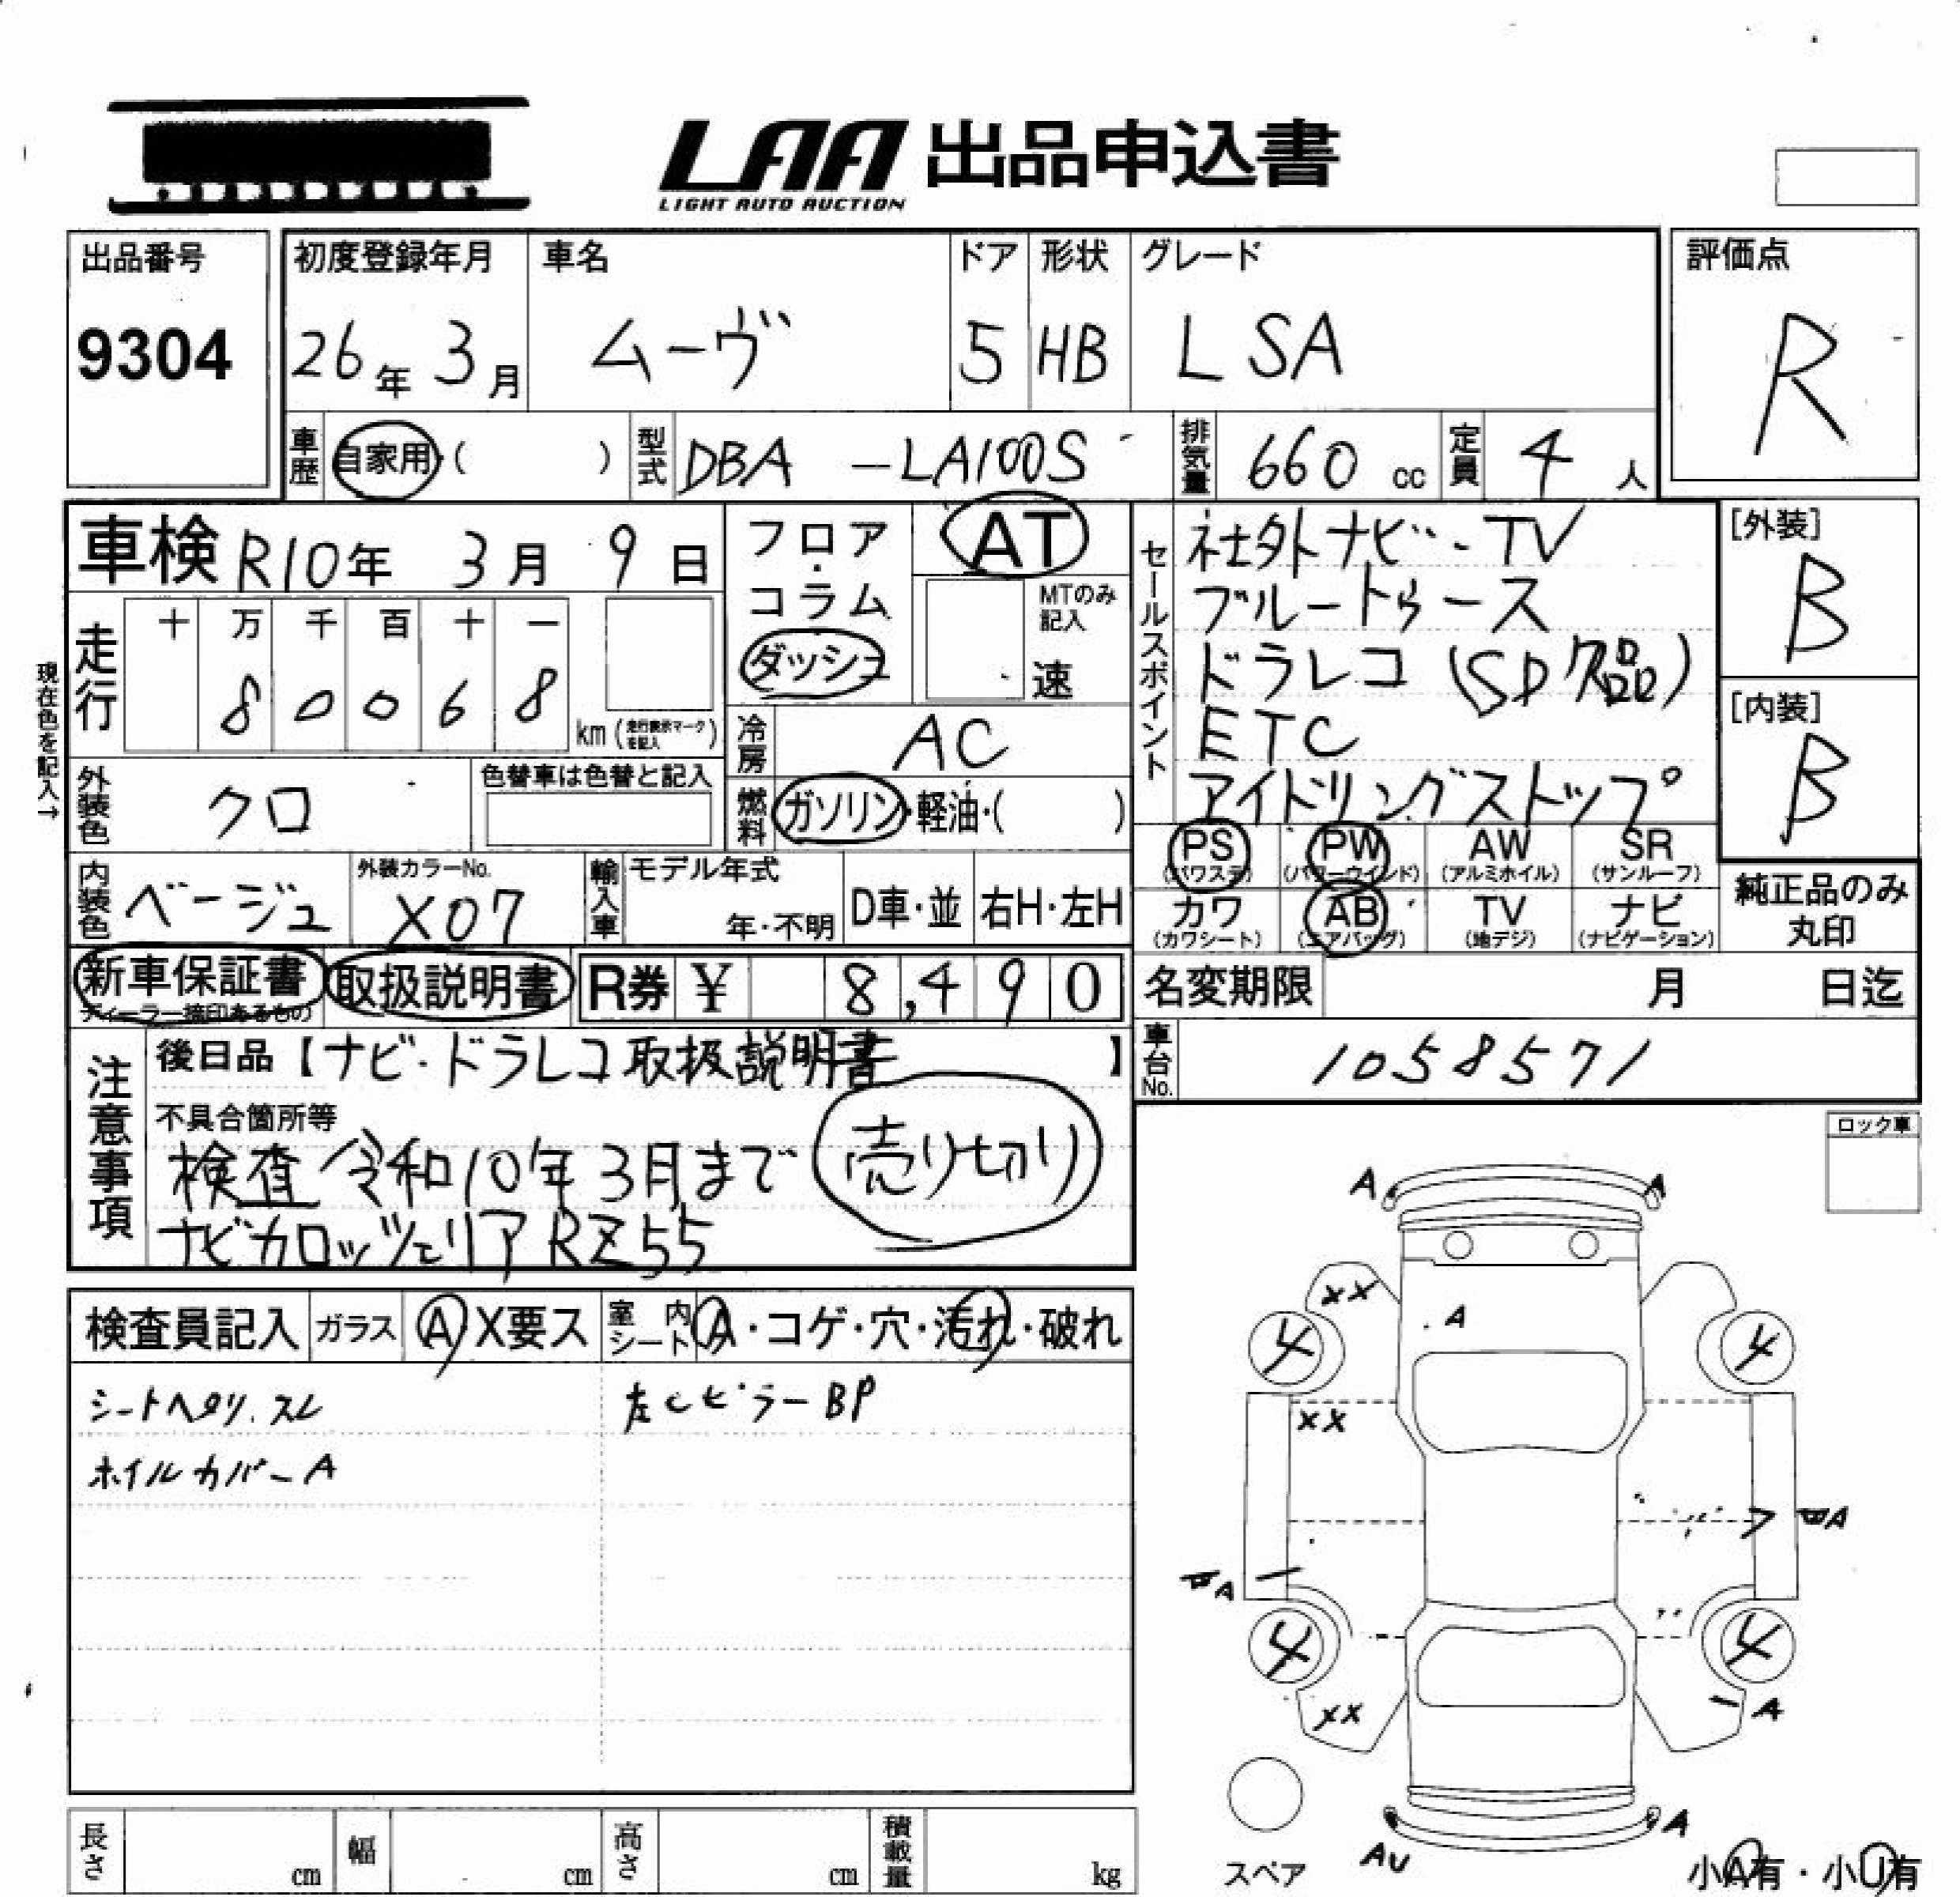 LAA 出品申込書
LIGHT AUTO AUCTION
出品番号
9304
初度登録年月
26年 3月
車名
ムーヴ
ドア
5
形状
HB
グレード
LSA
評価点
R
車歴
自家用・( )
型式
DBA -LA100S
排気量
660 cc
定員
4 人
車検 R10年 3月 9日
フロア
・
コラム
ダッシュ
AT
MTのみ
記入
速
セールスポイント
社外ナビ・TV
ブルートゥース
ドラレコ (SD欠品)
ETC
アイドリングストップ
[外装]
B
[内装]
B
現在色を記入→
走行
十 万 千 百 十 一
8 0 0 6 8
km (走行表示マークを記入)
冷房
AC
外装色
クロ
色替車は色替と記入
燃料
ガソリン・軽油・( )
PS
(パワステ)
PW
(パワーウインド)
AW
(アルミホイル)
SR
(サンルーフ)
カワ
(カワシート)
AB
(エアバッグ)
TV
(地デジ)
ナビ
(ナビゲーション)
純正品のみ
丸印
内装色
ベージュ
外装カラーNo.
X07
輸入車
モデル年式
年・不明
D車・並
右H・左H
新車保証書
ディーラー捺印あるもの
取扱説明書
R券 ¥ 8,490
名変期限 月 日迄
車台No.
1058571
注意事項
後日品【ナビ・ドラレコ取扱説明書】
不具合箇所等
検査 令和10年3月まで
売り切り
ナビカロッツェリア RZ55
ロック車
検査員記入
ガラス
A X要ス
室内シート
A・コゲ・穴・汚れ・破れ
シートヘタリ、スレ
左Cピラー BP
ホイルカバー A
A A
XX
A
4 4
XX
A
A
4 4
XX
A
A
AU
スペア
小A有・小U有
長さ cm
幅 cm
高さ cm
積載量 kg